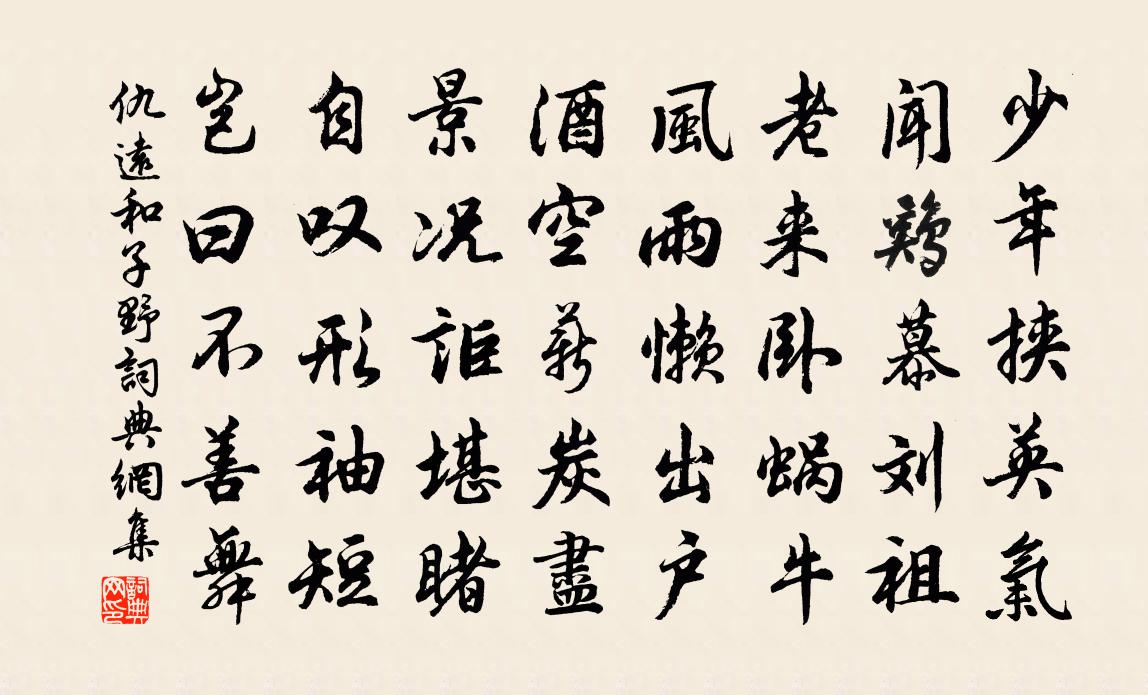 少年挟英氣
闻鷄慕刘祖
老来卧蜗牛
風雨懒出户
酒空薪炭盡
景况詎堪睹
自叹形袖短
岂曰不善舞
仇遠和子野詞典網集
詞典网印